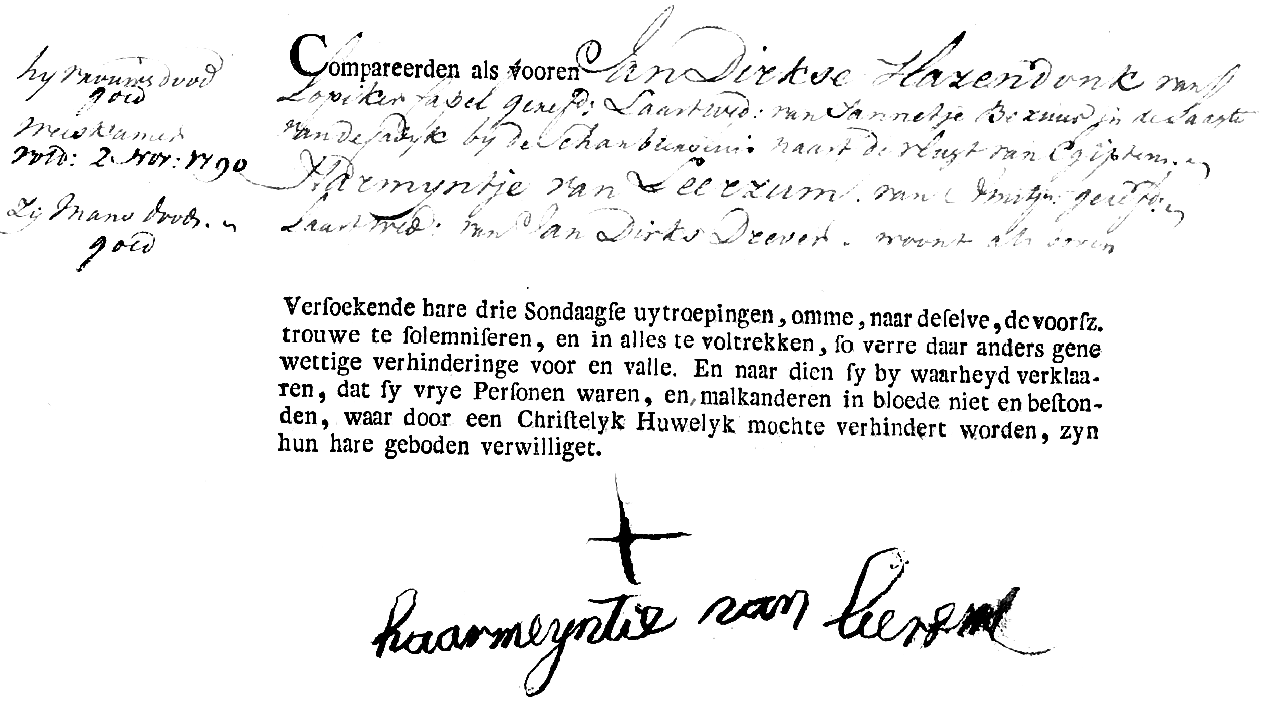 hy vrouws dood
goed
Weeskamer
vold: 2 Nov: 1790
Zij Mans dood.
goed
Compareerden als vooren Jan Dirkse Hazendonk van
Lopiker Capel geref: Laast wed: van Jannetje in de Laaste
van de dyk by de naast de vlugt van Egijpten.
Harmyntje van Leerzum. van geref:
Laast wed: van Jan Dirks Drever. woont als boven
Verſoekende hare drie Sondaagſe uytroepingen, omme, naar deſelve, de voorſz.
trouwe te ſolemniſeren, en in alles te voltrekken, ſo verre daar anders gene
wettige verhinderinge voor en valle. En naar dien ſy by waarheyd verklaa-
ren, dat ſy vrye Perſonen waren, en malkanderen in bloede niet en beſton-
den, waar door een Chriſtelyk Huwelyk mochte verhindert worden, zyn
hun hare geboden verwilliget.
haarmeyntie van leersem